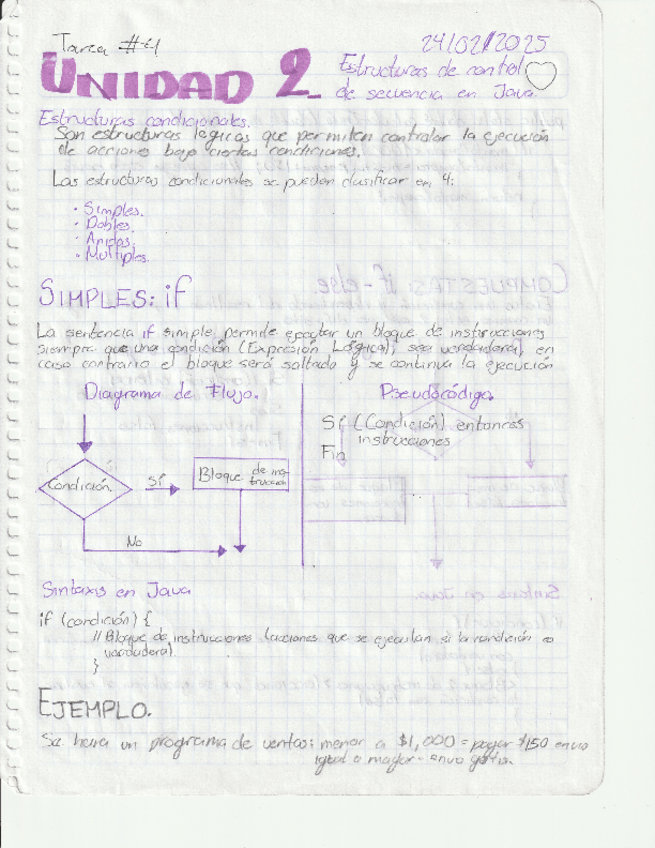 Tarea #4
24/02/2025
UNIDAD 2.
Estructuras de control
de secuencia en Java.
Estructuras condicionales.
Son estructuras lógicas que permiten controlar la ejecución
de acciones bajo ciertas condiciones.
Las estructuras condicionales se pueden clasificar en 4:
• Simples.
• Dobles.
• Anidas.
• Multiples.
SIMPLES: if
La sentencia if simple, permite ejecutar un bloque de instrucciones
siempre que una condición (Expresión Lógica), sea verdadera, en
caso contrario el bloque será saltado y se continua la ejecución
Diagrama de Flujo.
Pseudocódigo.
Sí (Condición) entonces
instrucciones
Fin
Condición.
Sí
Bloque de ins-
trucción
No
Sintaxis en Java
if (condición) {
// Bloque de instrucciones (acciones que se ejecutan si la condición es
verdadera).
}
EJEMPLO.
Se hara un programa de ventas: menor a $1,000 = pagar $150 envio
igual o mayor - envio gratis.